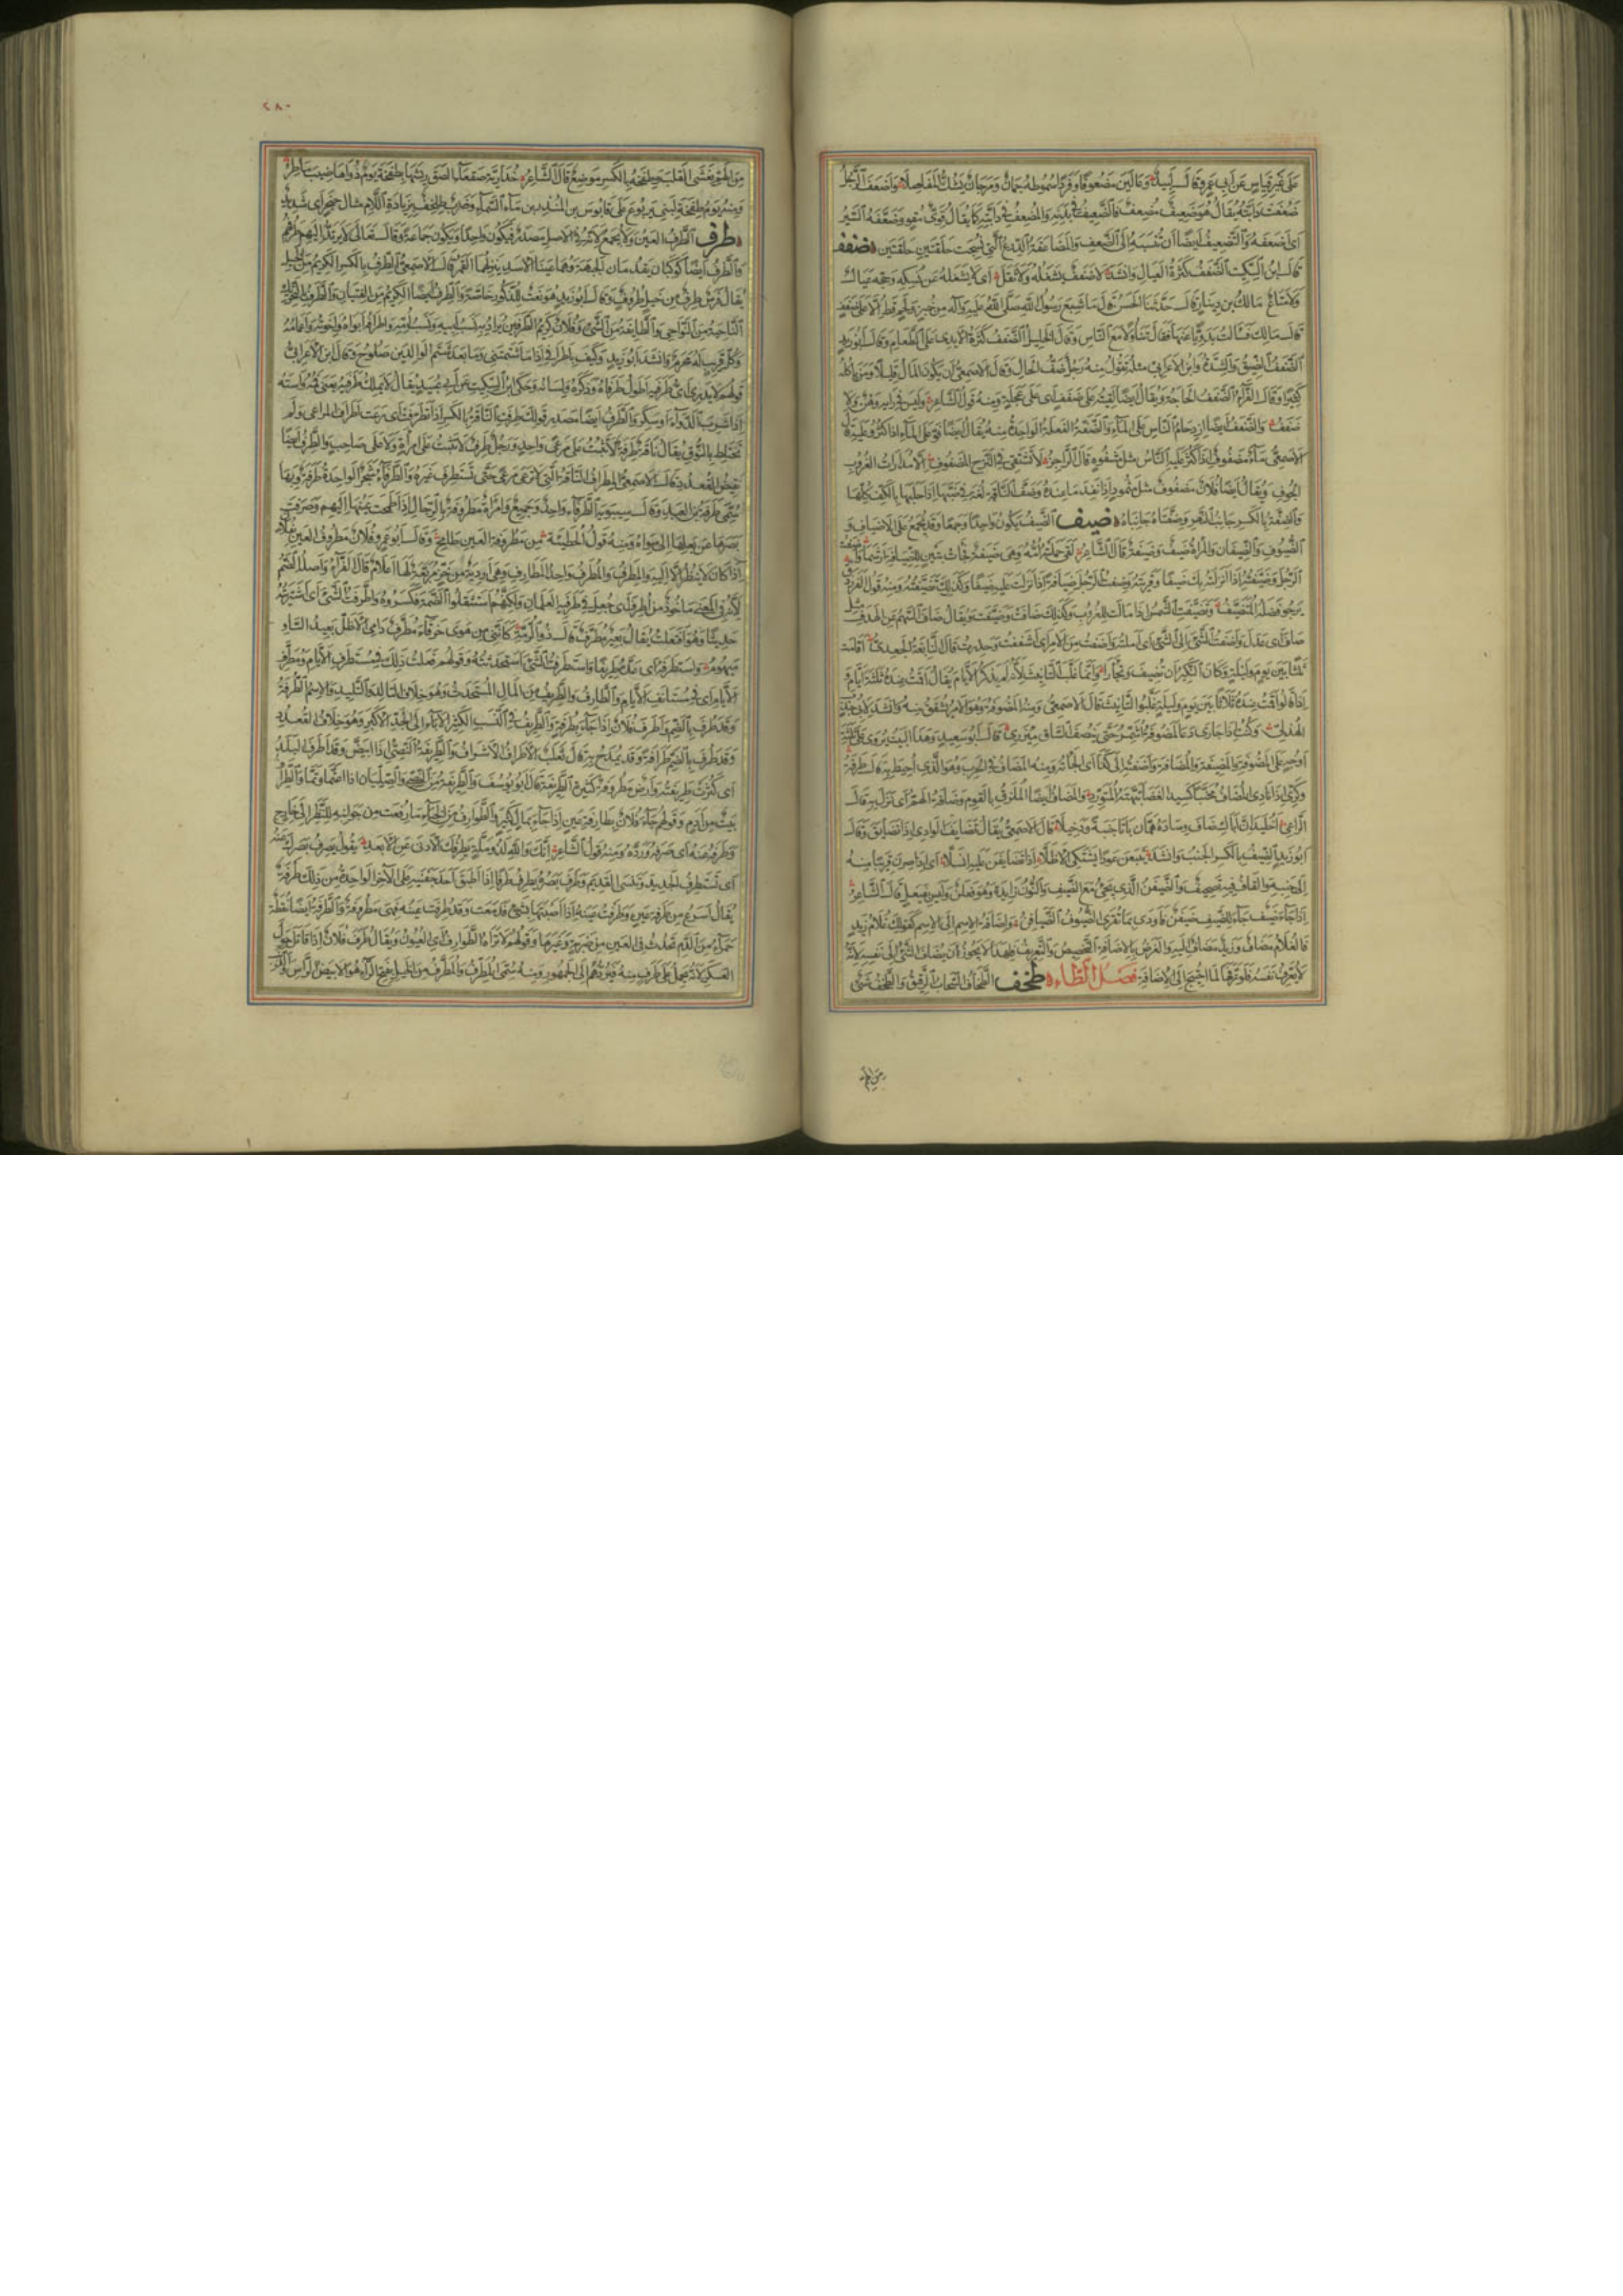 على غير قياس عن ابى عمرو قال لبيد وعالين مضعوفا وفردا سموطه جمان ومرجان يشك المفاصلا واضعف الرجل
ضعفت دابته يقال هو ضعيف مضعف فالضعيف فى بدنه والمضعف فى دابته كما يقال قوى مقو وضعفه السير
اى اضعفه والتضعيف ايضا ان تنسبه الى الضعف والمضاعفة الدرع التى نسجت حلقتين حلقتين ضفف
قال ابن السكيت الضفف كثرة العيال وانشد لا ضفف يشغله ولا ثقل اى لا يشغله عن نسكه وحجه عيال
ولا متاع مالك بن دينار قال حدثنا الحسن قال ما شبع رسول الله صلى الله عليه وآله من خبز ولحم قط الا على ضفف
قال مالك فسالت بدويا عنها فقال تناولا مع الناس وقال الخليل الضفف كثرة الايدى على الطعام وقال ابو زيد
الضفف الضيق والشدة وابن الاعرابى مثله تقول منه رجل ضف الحال وقال الاصمعى ان يكون المال قليلا ومن ياكله
كثيرا وقال الفراء الضفف الحاجة ويقال ايضا لقيته على ضفف اى على عجلة ومنه قول الشاعر وليس فى رايه وهن ولا
ضفف والضفف ايضا ازدحام الناس على الماء والضفة الفعلة الواحدة منه يقال ايضا
الاصمعى ماء مضفوف اذا كثر عليه الناس مثل مشفوه قال الراجز لا تستقى فى النزح المضفوف الا مدارات الغروب
الجوف ويقال ايضا فلان مضفوف مثل مثمود اذا نفد ما عنده وضف الناقة لغة فى ضبها اذا حلبها بالكف كلها
والضفة بالكسر جانب النهر وضفتاه جانباه ضيف الضيف يكون واحدا وجمعا وقد يجمع على الاضياف و
الضيوف والضيفان والمراة ضيف وضيفة قال الشاعر لقى حملته امه وهى ضيفة
الرجل وضيفته اذا انزلته بك ضيفا وقريته وضفت الرجل ضيافة اذا نزلت عليه ضيفا وكذلك تضيفته ومنه قول الفرزدق
يرجو فضله المتضيف وتضيفت الشمس اذا مالت للغروب وكذلك ضافت وضيفت ويقال ضاف السهم عن الهدف مثل
صاف اى عدل واضفت الشئ الى الشئ اى املته واضفت من الامر اى اشفقت وحذرت قال النابغة الجعدى اقامت
ثلثا بين يوم وليلة وكان النكير ان تضيف وتجارا وانما غلب التانيث لانه لم يذكر الايام يقال اقمت عنده ثلثة ايام
اذا قالوا اقمت عنده ثلاثا بين يوم وليلة غلبوا التانيث قال الاصمعى ومنه المضوفة وهو الامر يشفق منه وانشد لابى جندب
الهذلى وكنت اذا جارى دعا لمضوفة اشمر حتى ينصف الساق مئزرى قال ابو سعيد وهذا البيت يروى على ثلثة
اوجه على المضوفة والمضيفة والمضافة واضفته الى كذا اى الجاته ومنه المضاف فى الحرب وهو الذى احيط به قال طرفة
وكرى اذا نادى المضاف محنبا كسيد الغضا نبهته المتورد والمضاف ايضا الملزق بالقوم وضافه الهم اى نزل به قال
الراعى اخليد ان اباك ضاف وساده همان باتا جنبة ودخيلا قال الاصمعى يقال تضايف الوادى اذا تضايق وقال
ابو زيد الضيف بالكسر الجنب وانشد يتبعن عودا يشتكى الاظلا اذا تضايفن عليه انسلا اى اذا صرن قريبا منه
الى جنبه والقاف فيه تصحيف والضيفن الذى يجئ مع الضيف والنون زايدة وهو فعلن وليس بفيعل قال الشاعر
اذا جاء ضيف جاء للضيف ضيفن فاودى بما تقرى الضيوف الضيافن واضافة الاسم الى الاسم كقولك غلام زيد
فالغلام مضاف وزيد مضاف اليه والغرض بالاضافة التخصيص والتعريف فلهذا لا يجوز ان يضاف الشئ الى نفسه لانه
لا يعرف نفسه فلو عرفها لما احتيج الى الاضافة فصل الطاء طخف الطخاف السحاب الرقيق والطخف شئ
من الهم
٢٨٠
من الهم يغشى القلب وطخفة بالكسر موضع قال الشاعر خدارية صقعاء الصق ريشها بطخفة يوم ذو اهاضيب ماطر
ومنه يوم طخفة لبنى يربوع على قابوس بن المنذر بن ماء السماء وضرب طلخف بزيادة اللام مثال حبجر اى شديد
طرف الطرف العين ولا يجمع لانه فى الاصل مصدر فيكون واحدا ويكون جماعة وقال تعالى لا يرتد اليهم طرفهم
والطرف ايضا كوكبان يقدمان الجبهة وهما عينا الاسد ينزلهما القمر قال الاصمعى الطرف بالكسر الكريم من الخيل
يقال فرس طرف من خيل طروف وقال ابو زيد هو نعت للذكور خاصة والطرف ايضا الكريم من الفتيان والطرف بالتحريك
الناحية من النواحى والطائفة من الشئ وفلان كريم الطرفين يراد به نسب ابيه ونسب امه واطرافه ابواه واخوته واعمامه
وكل قريب له محرم وانشد ابو زيد وكيف باطرافى اذا ما شتمتنى وما بعد شتم الوالدين صلوح وقال ابن الاعرابى
قولهم لا يدرى اى طرفيه اطول طرفاه ذكره ولسانه وحكى ابن السكيت عن ابى عبيدة يقال لا يملك طرفيه يعنى فمه واسته
اذا شرب الدواء او سكر والطرف ايضا مصدر قولك طرفت الناقة بالكسر اذا تطرفت اى رعت اطراف المراعى ولم
تختلط بالنوق يقال ناقة طرفة لا تثبت على مرعى واحد ورجل طرف لا يثبت على امراة ولا على صاحب والطرف ايضا
نقيض القعدد قال الاصمعى المطراف الناقة التى لا ترعى مرعى حتى تستطرف غيره والطرفاء شجر الواحدة طرفة وبها
سمى طرفة بن العبد وقال سيبويه الطرفاء واحد وجميع وامراة مطروفة بالرجال اذا طمحت عينها اليهم وصرفت
بصرها عن بعلها الى سواه ومنه قول الحطيئة من مطروفة العين طامح وقال ابو عمرو فلان مطروف العين بفلان
اذا كان لا ينظر الا اليه والمطرف والمطرف واحد المطارف وهى اردية من خز مربعة لها اعلام قال الفراء واصله الضم
لانه فى المعنى ماخوذ من اطرف اى جعل فى طرفيه العلمان ولكنهم استثقلوا الضمة فكسروه واطرفت الشئ اى اشتريته
حديثا وهو افتعلت يقال بعير مطرف قال ذو الرمة كاننى من هوى خرقاء مطرف دامى الاظل بعيد الشاو
مهيوم واستطرفه اى عده طريفا واستطرفت الشئ استحدثته وقولهم فعلت ذلك فى مستطرف الايام ومطرف
الايام اى فى مستانف الايام والطارف والطريف من المال المستحدث وهو خلاف التالد والتليد والاسم الطرفة
وقد طرف بالضم واطرف فلان اذا جاء بطرفة والطريف فى النسب الكثير الاباء الى الجد الاكبر وهو خلاف القعدد
وقد طرف بالضم طرافة وقد يمدح به قال ثعلب الاطراف الاشراف والطريفة النصى اذا ابيض وقد اطرف البلد
اى كثرت طريفته وارض مطروفة كثيرة الطريفة قال ابو يوسف والطريفة من النصى والصليان اذا اعتما وتما والطراف
بيت من ادم وقولهم جاء فلان بطارفة عين اذا جاء بمال كثير والطوارف من الخباء ما رفعت من جوانبه للنظر الى خارج
وطرفه عنه اى صرفه ورده ومنه قول الشاعر انك والله لذو ملة يطرفك الادنى عن الابعد يقول يصرف بصرك عنه
اى تستطرف الجديد وتنسى القديم وطرف بصره يطرف طرفا اذا اطبق احد جفنيه على الآخر الواحدة من ذلك طرفة
يقال اسرع من طرفة عين وطرفت عينه اذا اصبتها بشئ فدمعت وقد طرفت عينه فهى مطروفة والطرفة ايضا نقطة
حمراء من الدم تحدث فى العين من ضربة وغيرها وقولهم لا تراه الطوارف اى العيون ويقال طرف فلان اذا قاتل حول
العسكر لانه يحمل على طرف منه فيردهم الى الجمهور ومنه سمى المطرف والمطرف من الخيل بفتح الراء هو الابيض الراس والذنب